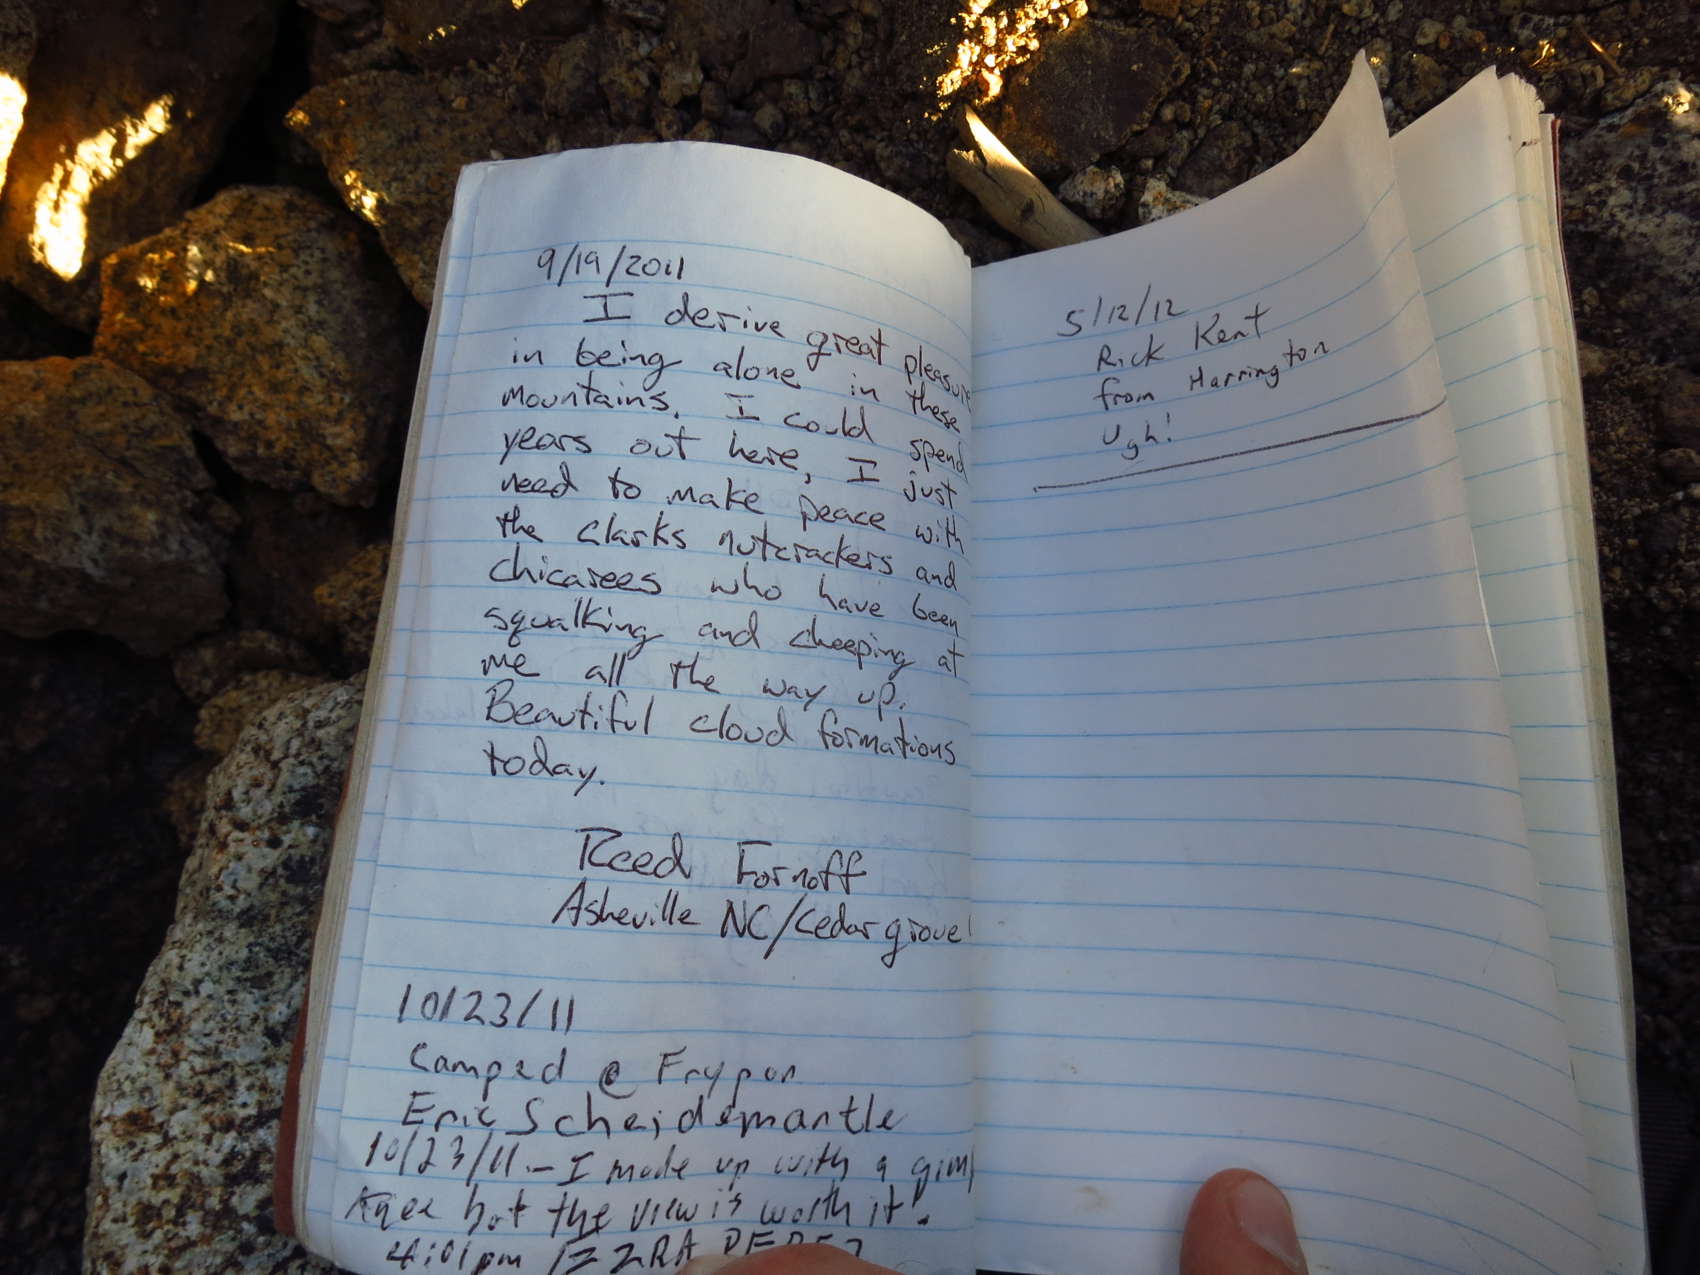 9/19/2011
I derive great pleasure
in being alone in these
mountains. I could spend
years out here, I just
need to make peace with
the clarks nutcrackers and
chicarees who have been
squalking and cheeping at
me all the way up.
Beautiful cloud formations
today.
Reed Fornoff
Asheville NC/Cedar grove
10/23/11
Camped @ Frypan
Eric Scheidemantle
10/23/11 - I made up with a gimp
knee but the view is worth it!
4:01pm EZRA PEREZ
5/12/12
Rick Kent
from Harrington
Ugh!